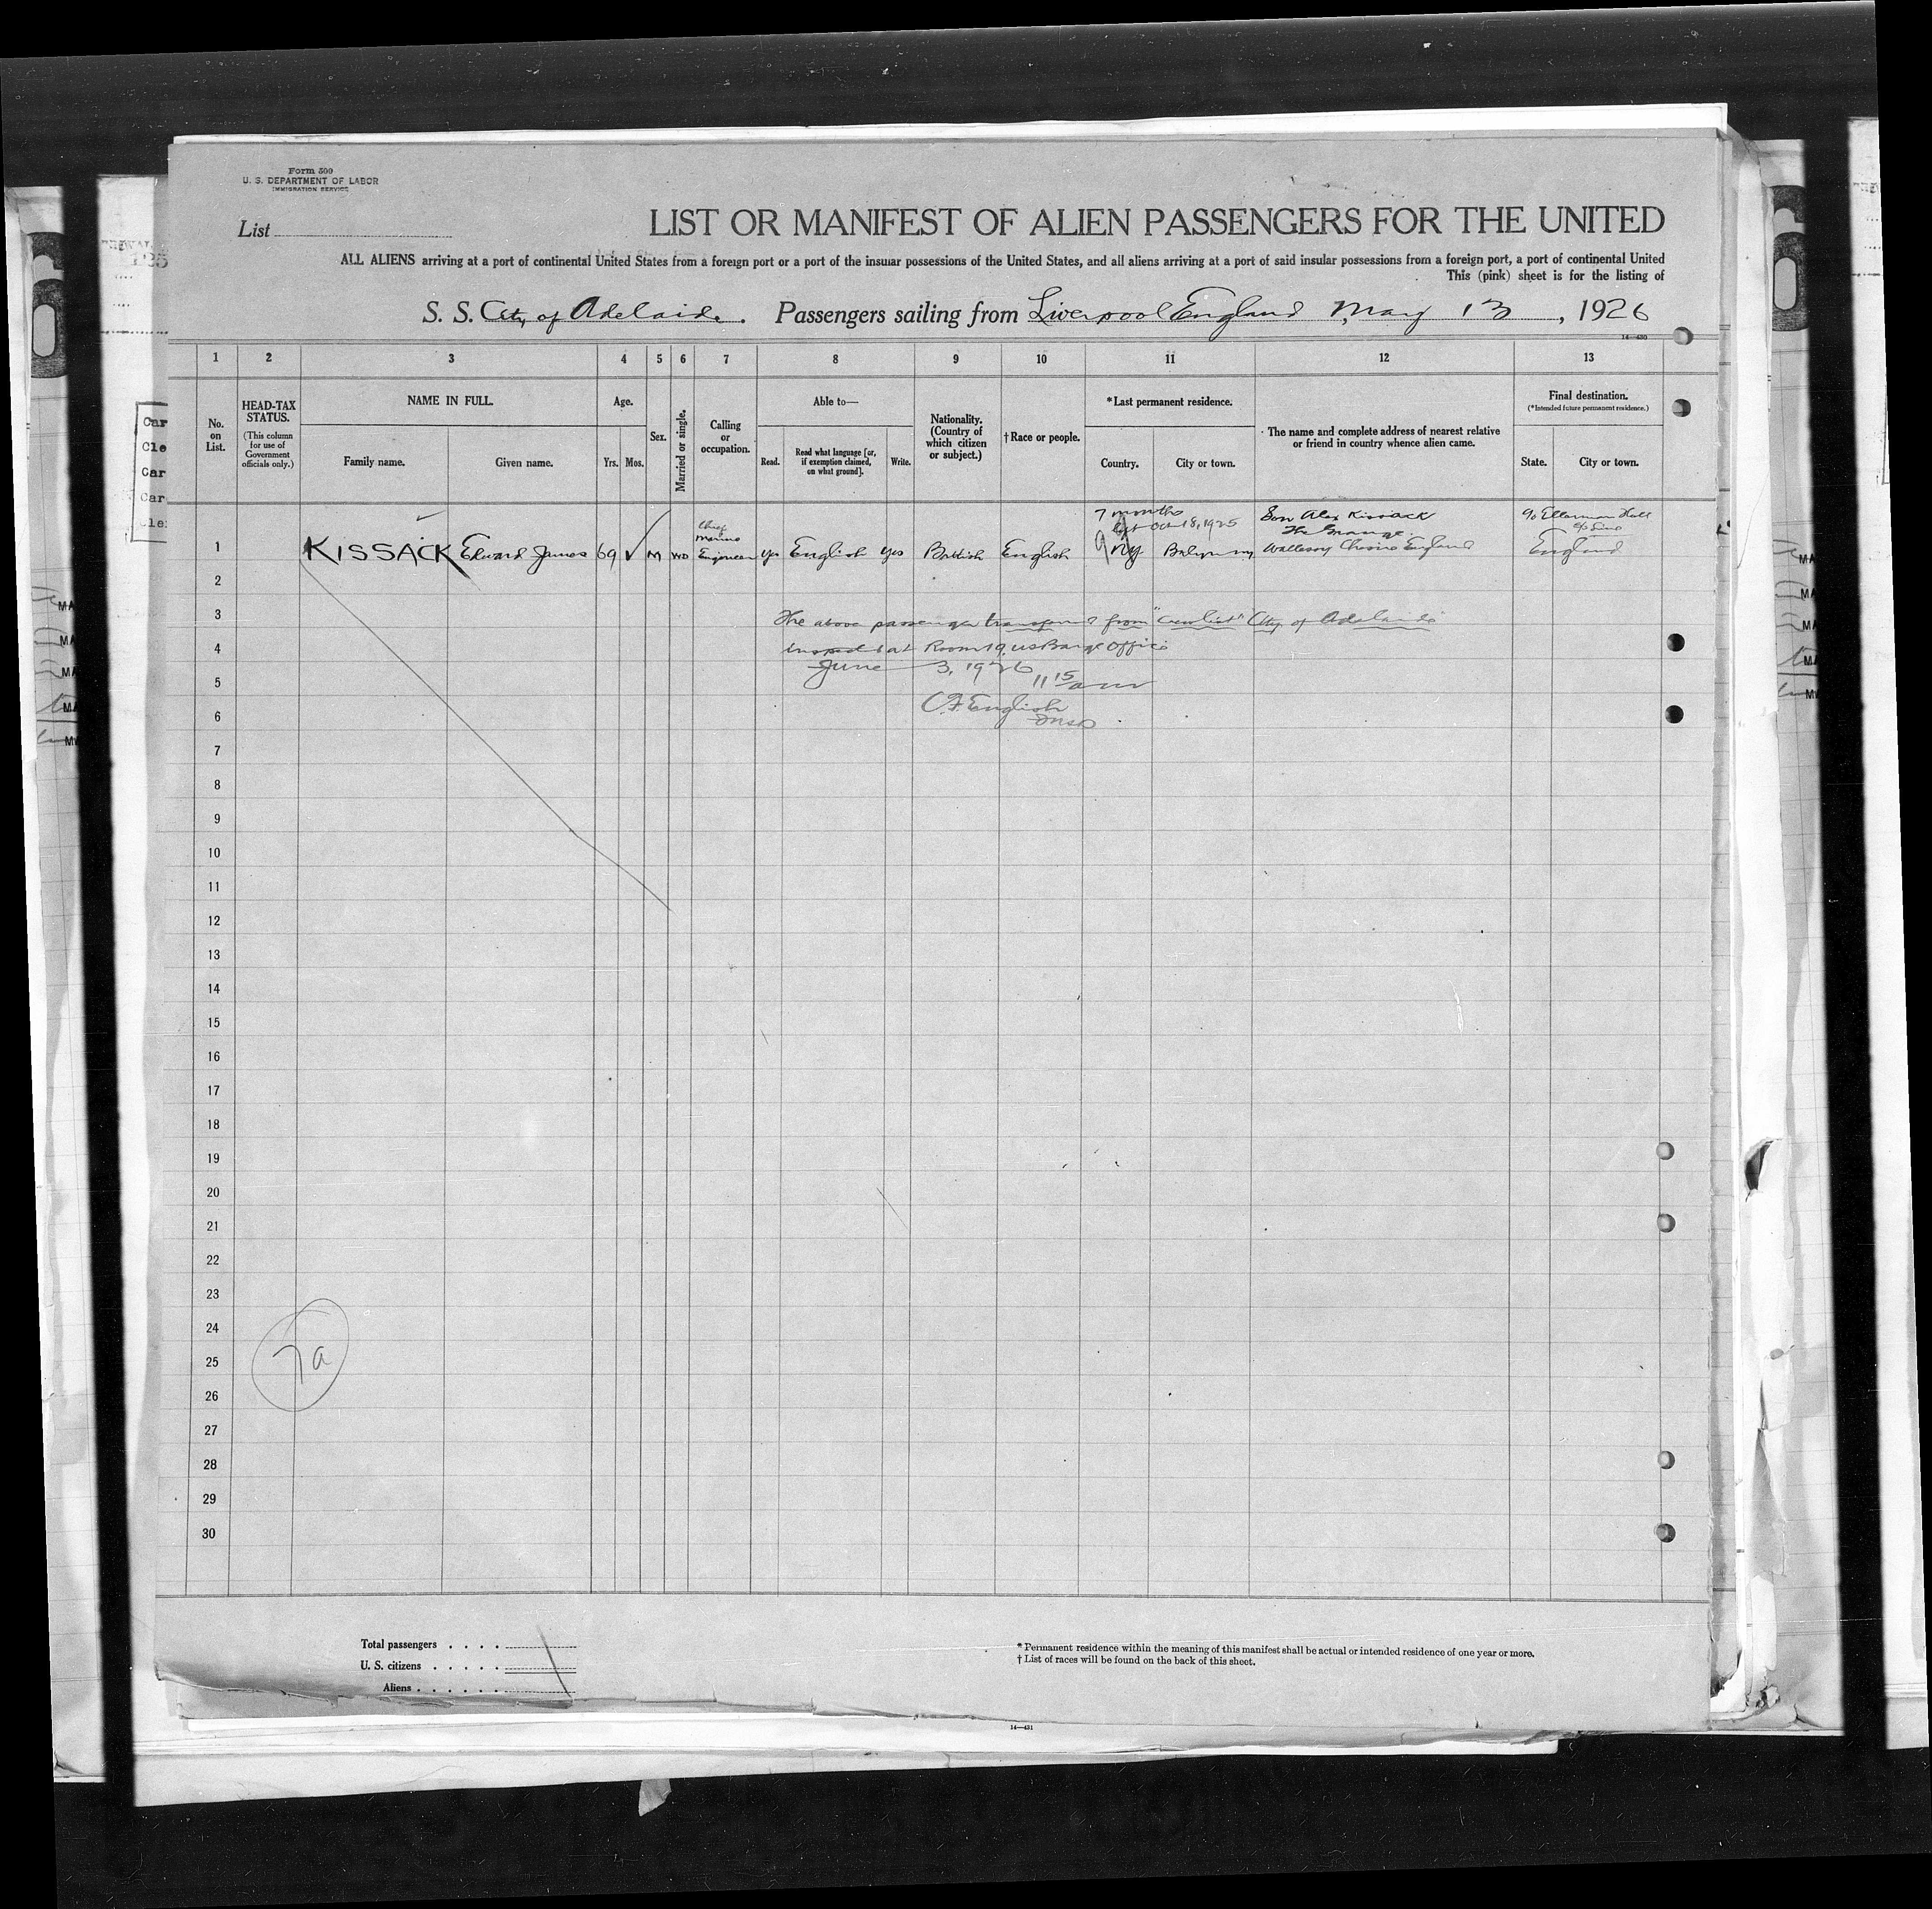 Form 500
U. S. DEPARTMENT OF LABOR
IMMIGRATION SERVICE
List
LIST OR MANIFEST OF ALIEN PASSENGERS FOR THE UNITED
ALL ALIENS arriving at a port of continental United States from a foreign port or a port of the insular possessions of the United States, and all aliens arriving at a port of said insular possessions from a foreign port, a port of continental United
This (pink) sheet is for the listing of
S. S. City of Adelaide. Passengers sailing from Liverpool England May 13, 1926
14—430
1 2 3 4 5 6 7 8 9 10 11 12 13
No. on List.
HEAD-TAX STATUS.
(This column for use of Government officials only.)
NAME IN FULL.
Family name.
Given name.
Age.
Yrs. Mos.
Sex.
Married or single.
Calling or occupation.
Able to—
Read.
Read what language [or, if exemption claimed, on what ground].
Write.
Nationality. (Country of which citizen or subject.)
† Race or people.
* Last permanent residence.
Country.
City or town.
The name and complete address of nearest relative or friend in country whence alien came.
Final destination.
(* Intended future permanent residence.)
State.
City or town.
7 months
Oct 18, 1925
1 KISSACK Edward James 69 M WD Chief Marine Engineer yes English yes British English NY
Son Alex Kissack
The Grange
Wallasey England
c/o Ellerman Hall
England
2
3 The above passenger from "Crew list" City of Adelaide
4 at Room 19, US Barge Office
June 3, 1926
5 11 15 am
English
6 Insp
7
8
9
10
11
12
13
14
15
16
17
18
19
20
21
22
23
24
25
26
27
28
29
30
7a
Total passengers
U. S. citizens
Aliens
* Permanent residence within the meaning of this manifest shall be actual or intended residence of one year or more.
† List of races will be found on the back of this sheet.
14—431